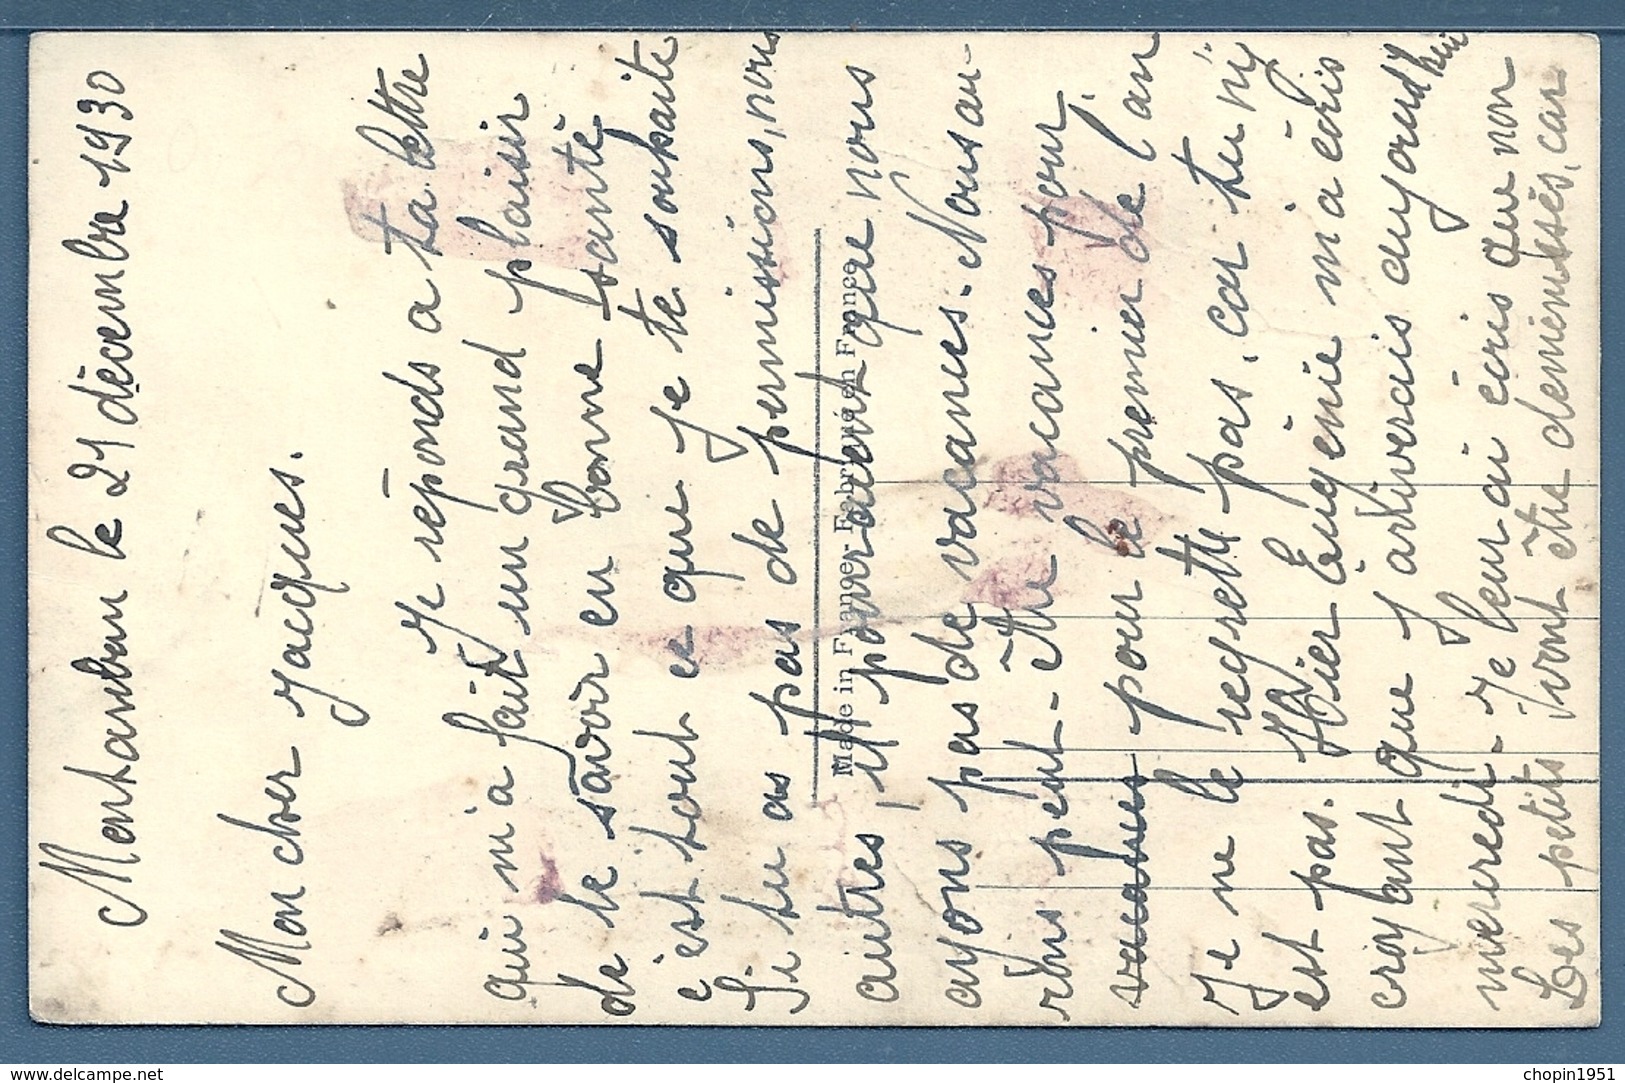 Montauban le 21 décembre 1930
Mon cher Jacques.
Je réponds a ta lettre
qui m'a fait un grand plaisir
de te savoir en bonne santé
c'est tout ce que je te souhaite
Si tu as pas de permissions, nous
autres, il parait que nous
ayons pas de vacances. Nous au-
rons peut-être vacances pour
vacances pour le premier de l'an
Je ne le regrette pas, car tu n'y
est pas. Hier Eugénie m'a écris
croyant que j'arriverais aujourd'hui
mercredi - Je leur ai écris que non
Les petits vont être
Made in France - Fabriqué en France
www.delcampe.net
chopin1951